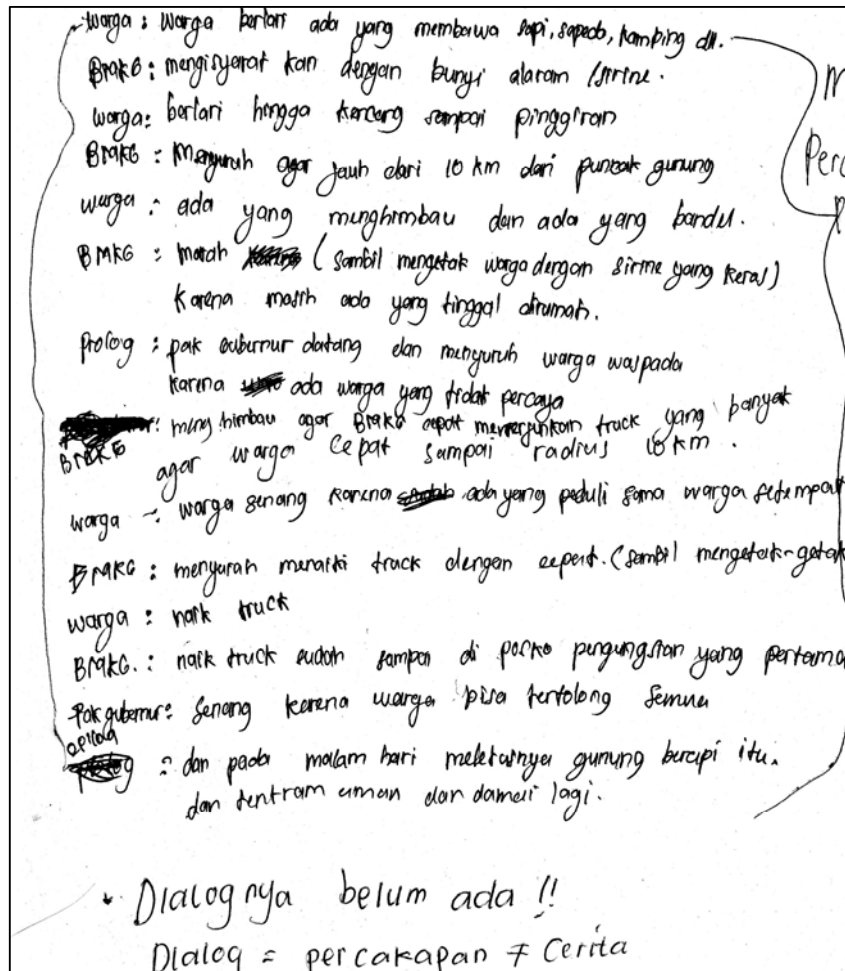 warga : warga berlari ada yang membawa sapi, sapeda, kambing dll.
BMKG : mengisyarat kan dengan bunyi alaram /sirine.
warga : berlari hingga kencang sampai pinggiran
BMKG : Menyuruh agar jauh dari 10 km dari puncak gunung
warga : ada yang menghimbau dan ada yang bandel.
BMKG : marah (sambil mengetak warga dengan sirine yang keras)
karena masih ada yang tinggal dirumah.
prolog : pak gubernur datang dan menyuruh warga waspada
karena ada warga yang tidak percaya
BMKG : meng himbau agar BMKG cepat menerjunkan truck yang banyak
agar warga cepat sampai radius 10 km.
warga : warga senang karena ada yang peduli sama warga setempat
BMKG : menyuruh menaiki truck dengan cepat. (sambil mengetak-getak
warga : naik truck
BMKG. : naik truck sudah sampai di posko pengungsian yang pertama
Pak gubernur : Senang karena warga bisa tertolong semua
epilog : dan pada malam hari meletusnya gunung berapi itu.
dan tentram aman dan damai lagi.
* Dialognya belum ada !!
Dialog = percakapan ≠ Cerita